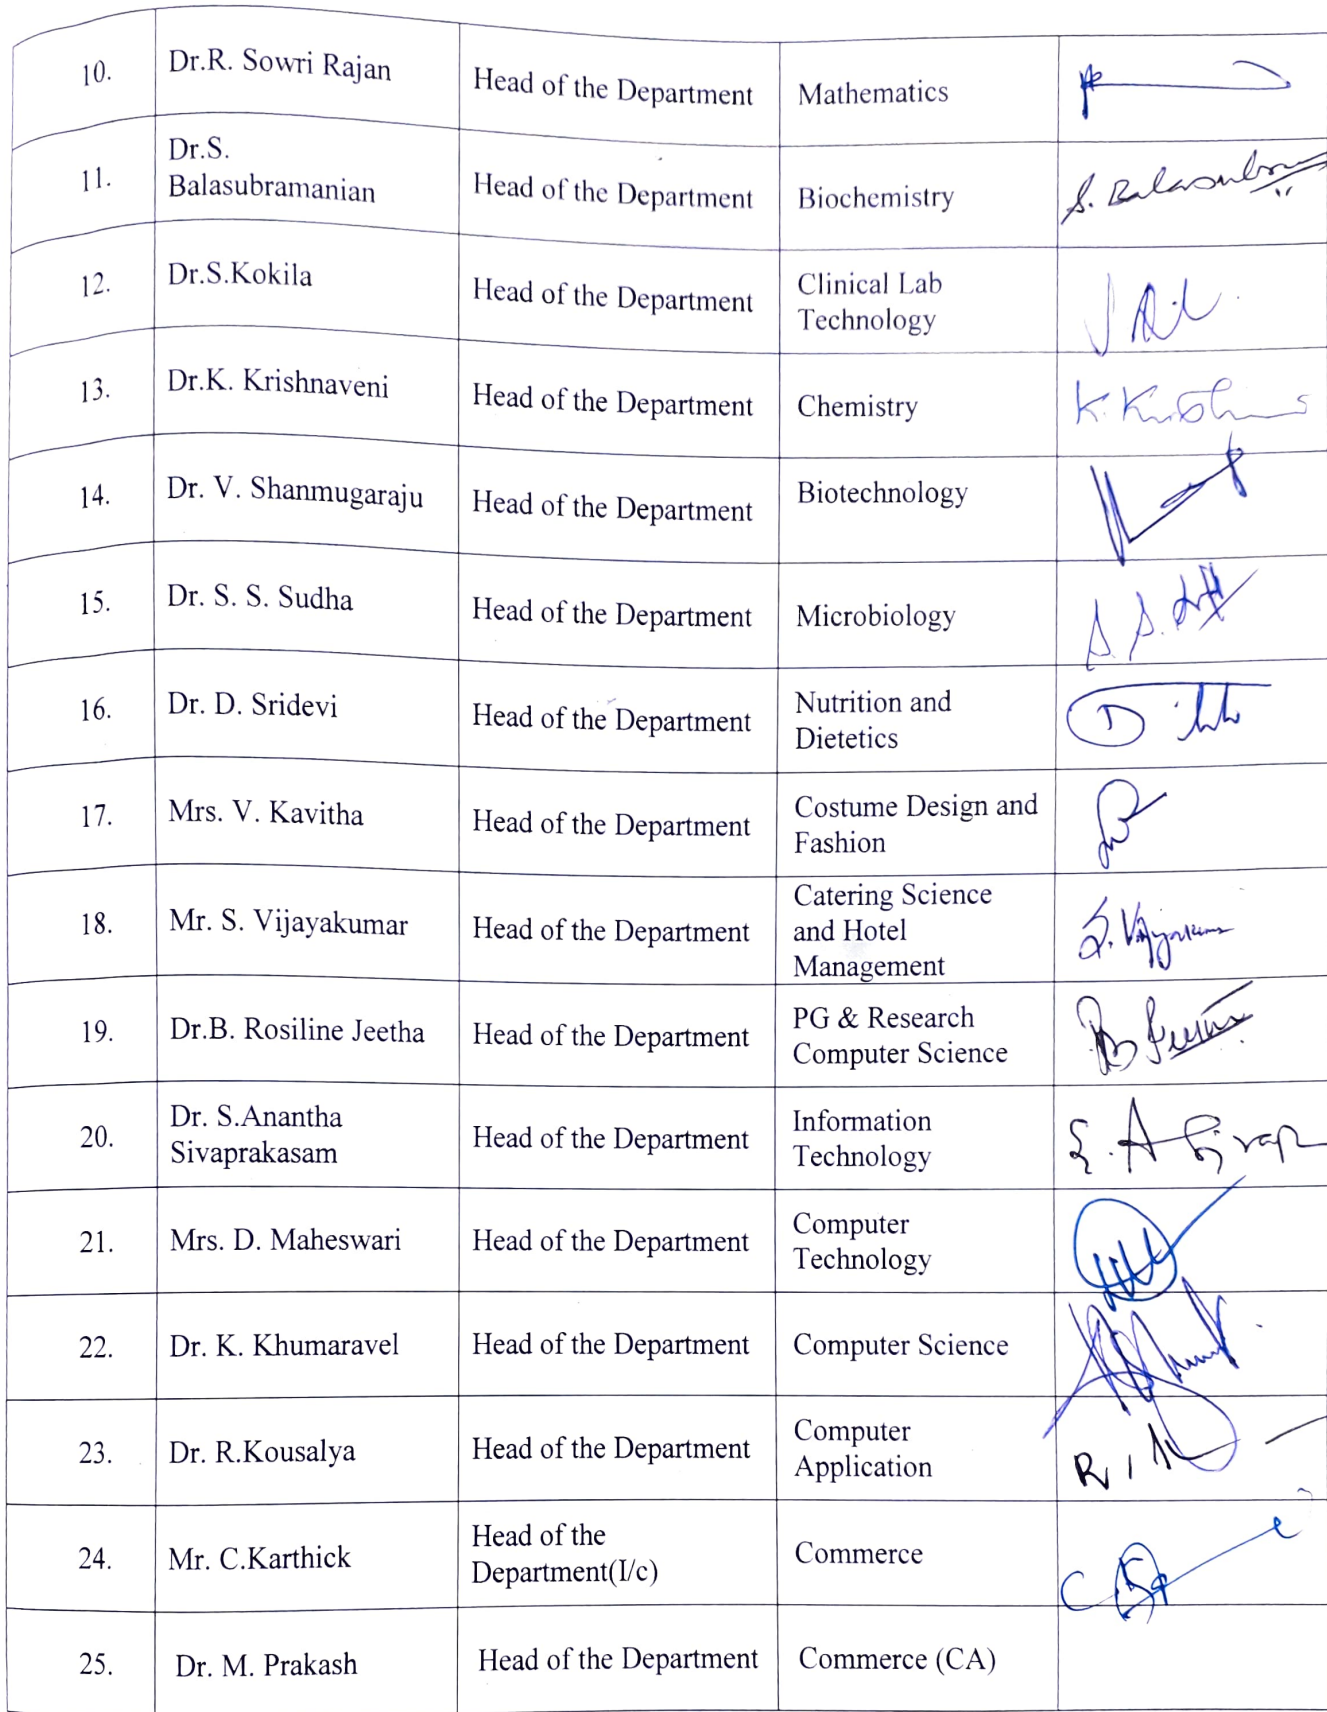 10.
Dr.R. Sowri Rajan
Head of the Department
Mathematics
11.
Dr.S.
Balasubramanian
Head of the Department
Biochemistry
12.
Dr.S.Kokila
Head of the Department
Clinical Lab
Technology
13.
Dr.K. Krishnaveni
Head of the Department
Chemistry
14.
Dr. V. Shanmugaraju
Head of the Department
Biotechnology
15.
Dr. S. S. Sudha
Head of the Department
Microbiology
16.
Dr. D. Sridevi
Head of the Department
Nutrition and
Dietetics
17.
Mrs. V. Kavitha
Head of the Department
Costume Design and
Fashion
18.
Mr. S. Vijayakumar
Head of the Department
Catering Science
and Hotel
Management
S. Vijayakumar
19.
Dr.B. Rosiline Jeetha
Head of the Department
PG & Research
Computer Science
20.
Dr. S.Anantha
Sivaprakasam
Head of the Department
Information
Technology
21.
Mrs. D. Maheswari
Head of the Department
Computer
Technology
22.
Dr. K. Khumaravel
Head of the Department
Computer Science
23.
Dr. R.Kousalya
Head of the Department
Computer
Application
24.
Mr. C.Karthick
Head of the
Department(I/c)
Commerce
25.
Dr. M. Prakash
Head of the Department
Commerce (CA)